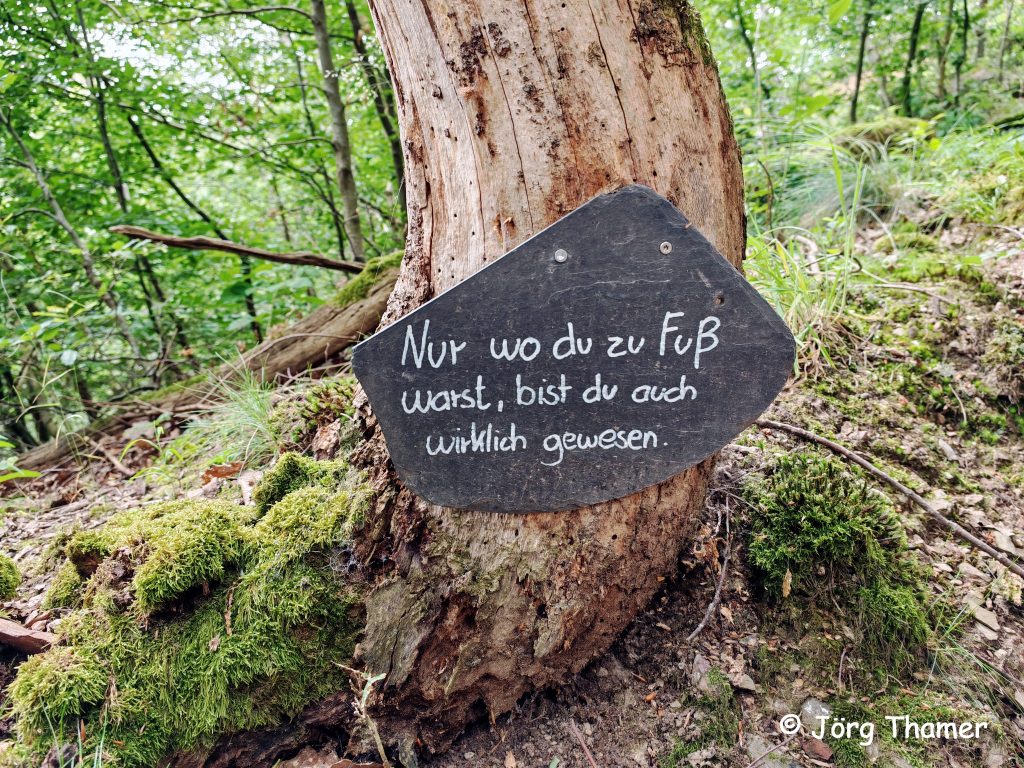 Nur wo du zu Fuß
warst, bist du auch
wirklich gewesen.
© Jörg Thamer